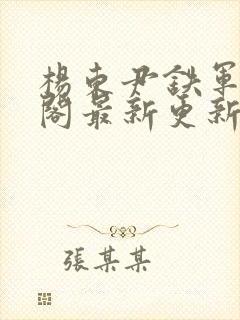 楊東尹鉄軍
閣最新更新
張某某